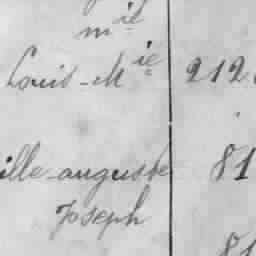 m.iel
Louis-Mie 212
ille auguste 81
Joseph
81